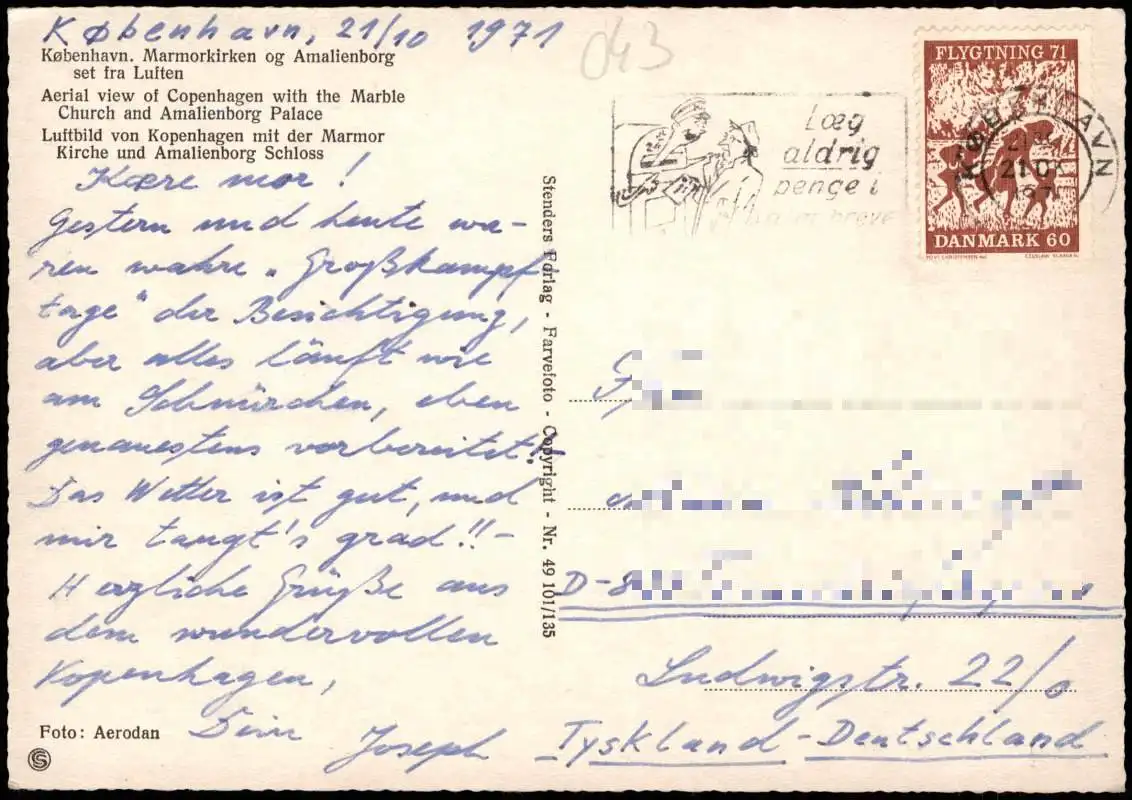 København, 21/10 1971
043
København. Marmorkirken og Amalienborg
set fra Luften
Aerial view of Copenhagen with the Marble
Church and Amalienborg Palace
Luftbild von Kopenhagen mit der Marmor
Kirche und Amalienborg Schloss
Kære mor!
Gestern und heute wa-
ren wahre „Großkampf
tage" der Besichtigung,
aber alles läuft wie
am Schnürchen, eben
genauestens vorbereitet!
Das Wetter ist gut, und
mir taugt's grad!!-
Herzliche Grüße aus
dem wundervollen
Kopenhagen,
Dein Joseph
Foto: Aerodan
S
Stenders Forlag - Farvefoto - Copyright - Nr. 49 101/135
Læg
aldrig
penge i
breve
FLYGTNING 71
DANMARK 60
KØBENHAVN
D-8
Ludwigstr. 22/0
Tyskland-Deutschland